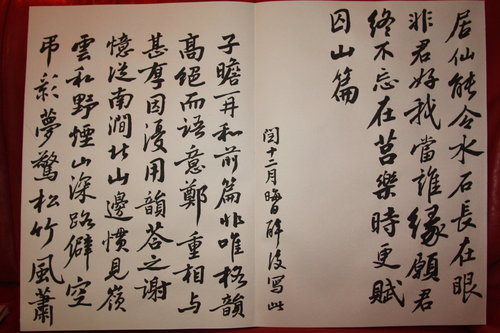 居仙能令水石長在眼
非君好我當誰緣願君
終不忘在莒樂時更賦
囚山篇
閏十二月晦日醉後寫此
子瞻再和前篇非唯格韻
高絕而語意鄭重相与
甚厚因復用韻荅之謝
憶從南澗北山邊慣見嶺
雲和野煙山深路僻空
吊影夢驚松竹風蕭